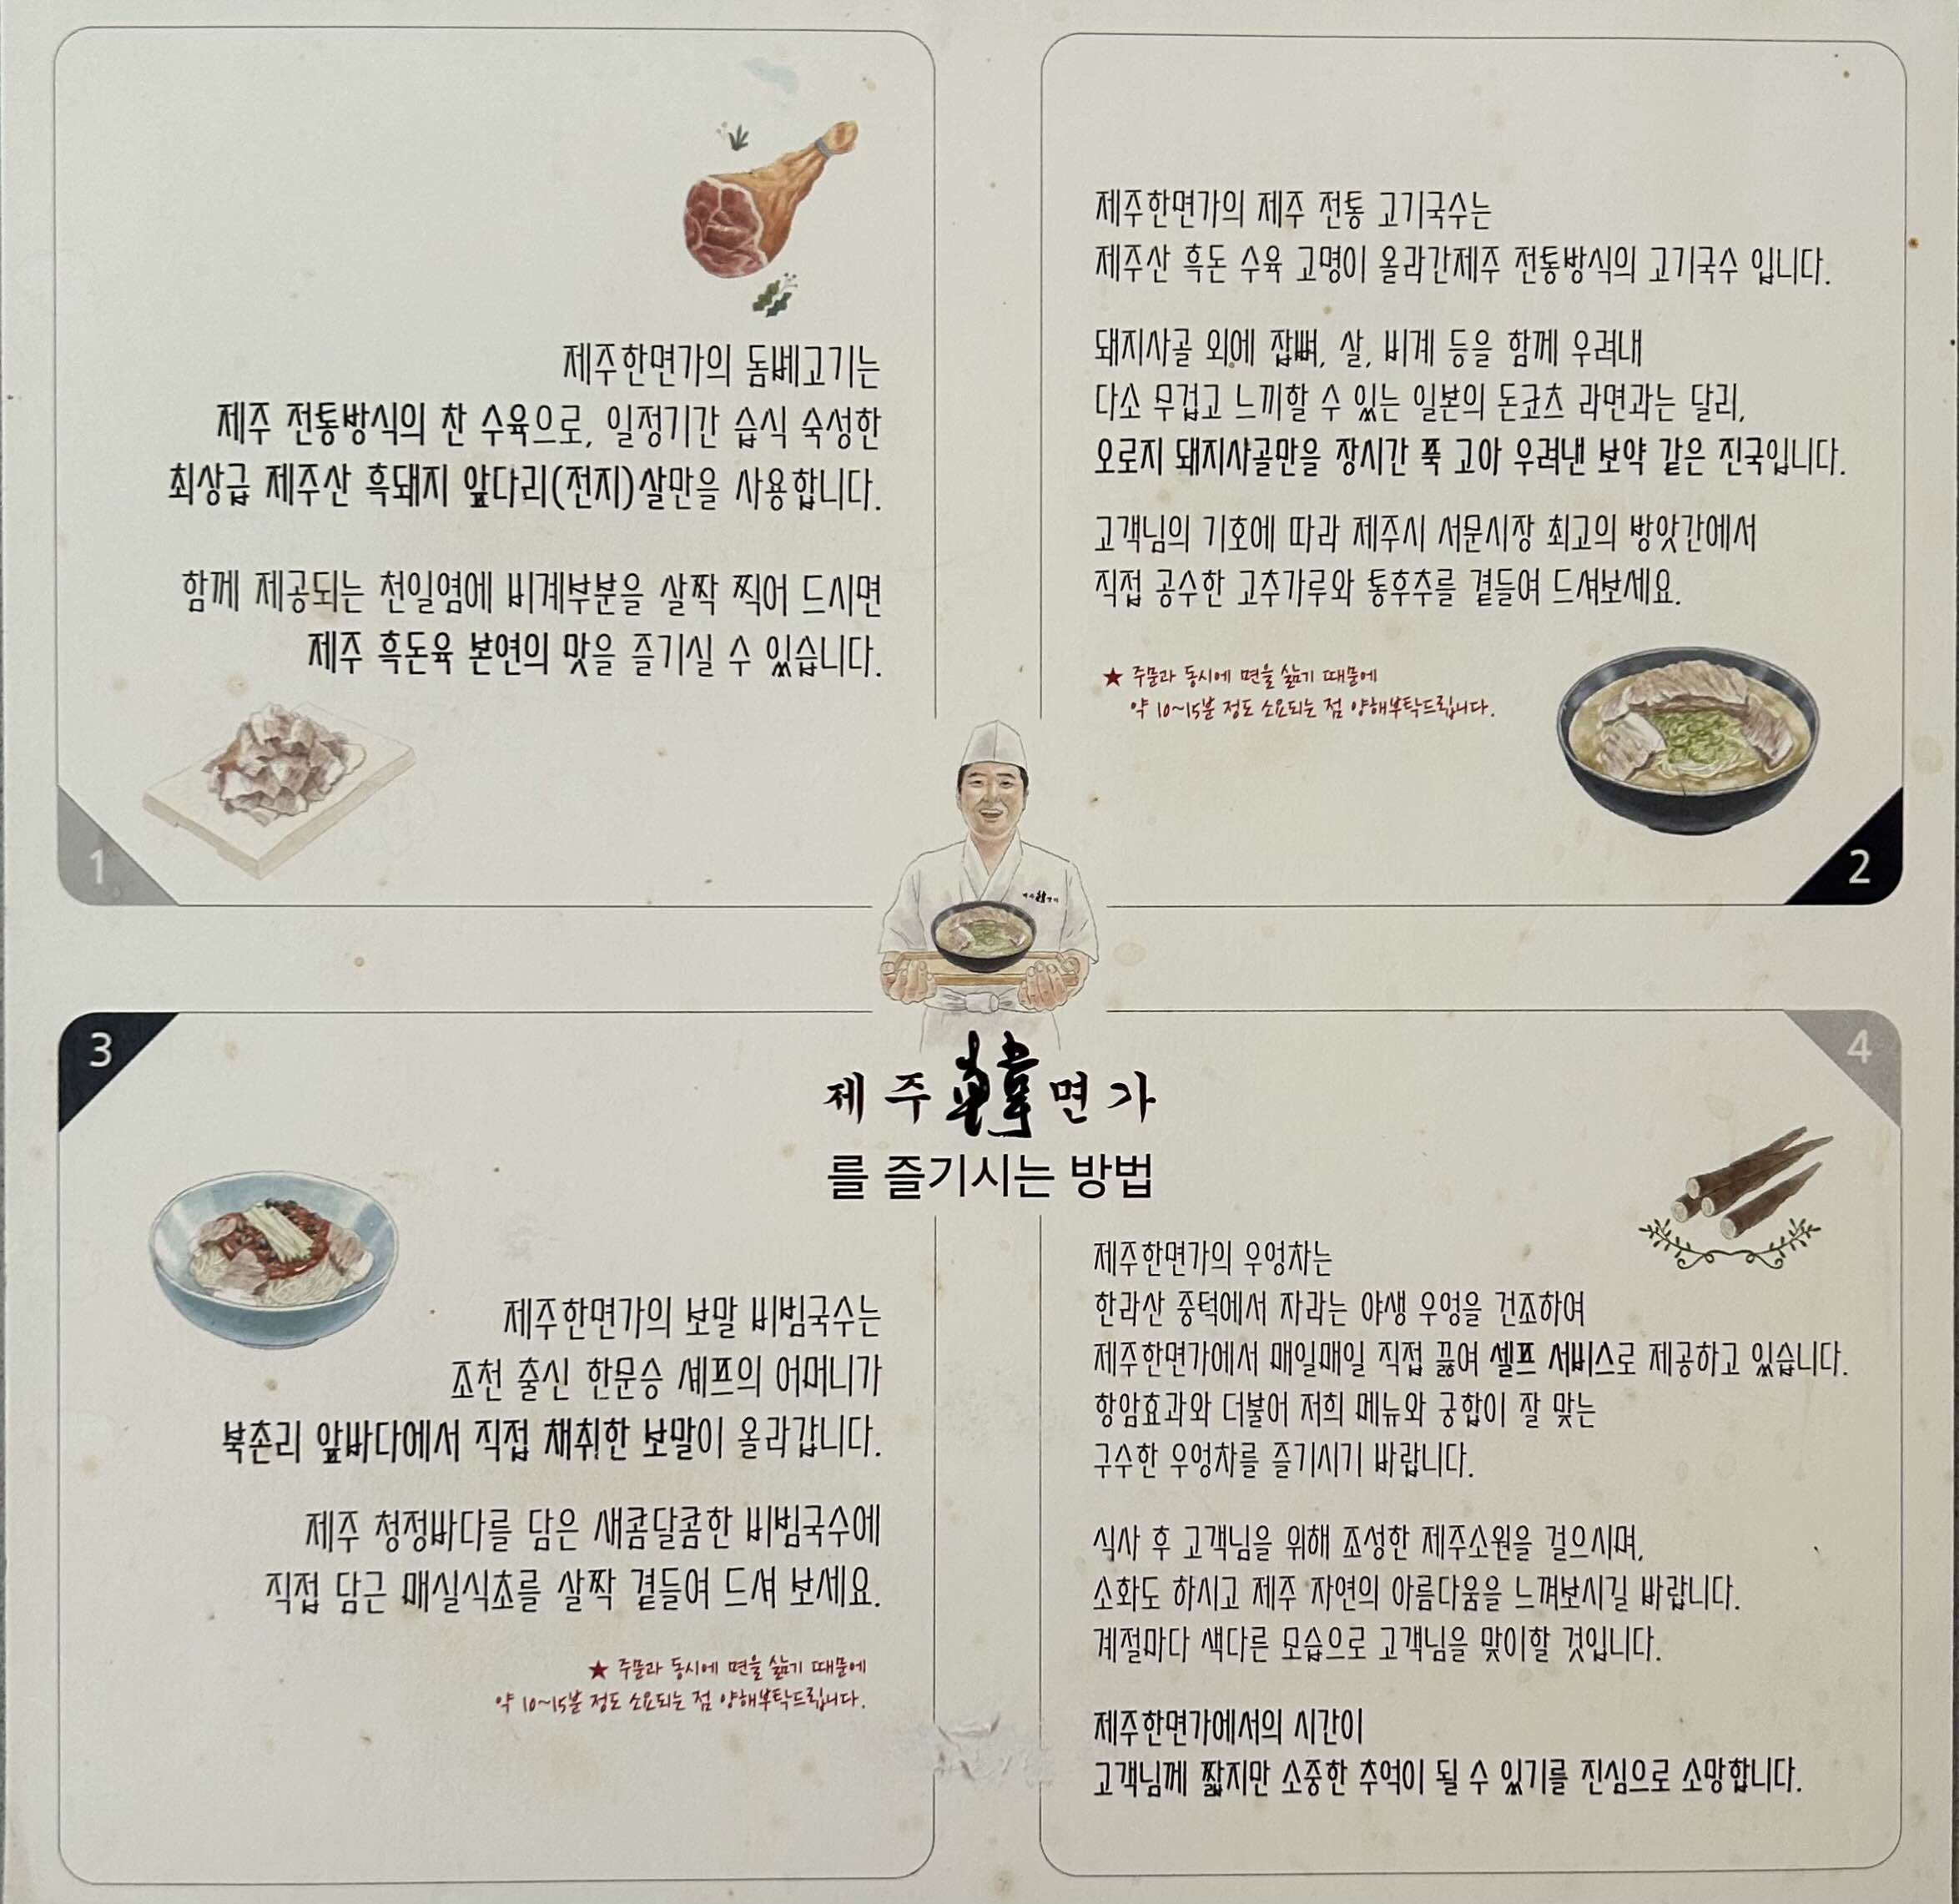 제주한면가의 돔베고기는
제주 전통방식의 찬 수육으로, 일정기간 습식 숙성한
최상급 제주산 흑돼지 앞다리(전지)살만을 사용합니다.
함께 제공되는 천일염에 비계부분을 살짝 찍어 드시면
제주 흑돈육 본연의 맛을 즐기실 수 있습니다.
1
제주한면가의 제주 전통 고기국수는
제주산 흑돈 수육 고명이 올라간제주 전통방식의 고기국수 입니다.
돼지사골 외에 잡뼈, 살, 비계 등을 함께 우려내
다소 무겁고 느끼할 수 있는 일본의 돈코츠 라면과는 달리,
오로지 돼지사골만을 장시간 푹 고아 우려낸 보약 같은 진국입니다.
고객님의 기호에 따라 제주시 서문시장 최고의 방앗간에서
직접 공수한 고추가루와 통후추를 곁들여 드셔보세요.
★ 주문과 동시에 면을 삶기 때문에
약 10~15분 정도 소요되는 점 양해부탁드립니다.
2
제주韓면가
를 즐기시는 방법
3
제주한면가의 보말 비빔국수는
조천 출신 한문승 셰프의 어머니가
북촌리 앞바다에서 직접 채취한 보말이 올라갑니다.
제주 청정바다를 담은 새콤달콤한 비빔국수에
직접 담근 매실식초를 살짝 곁들여 드셔 보세요.
★ 주문과 동시에 면을 삶기 때문에
약 10~15분 정도 소요되는 점 양해부탁드립니다.
4
제주한면가의 우엉차는
한라산 중턱에서 자라는 야생 우엉을 건조하여
제주한면가에서 매일매일 직접 끓여 셀프 서비스로 제공하고 있습니다.
항암효과와 더불어 저희 메뉴와 궁합이 잘 맞는
구수한 우엉차를 즐기시기 바랍니다.
식사 후 고객님을 위해 조성한 제주소원을 걸으시며,
소화도 하시고 제주 자연의 아름다움을 느껴보시길 바랍니다.
계절마다 색다른 모습으로 고객님을 맞이할 것입니다.
제주한면가에서의 시간이
고객님께 짧지만 소중한 추억이 될 수 있기를 진심으로 소망합니다.